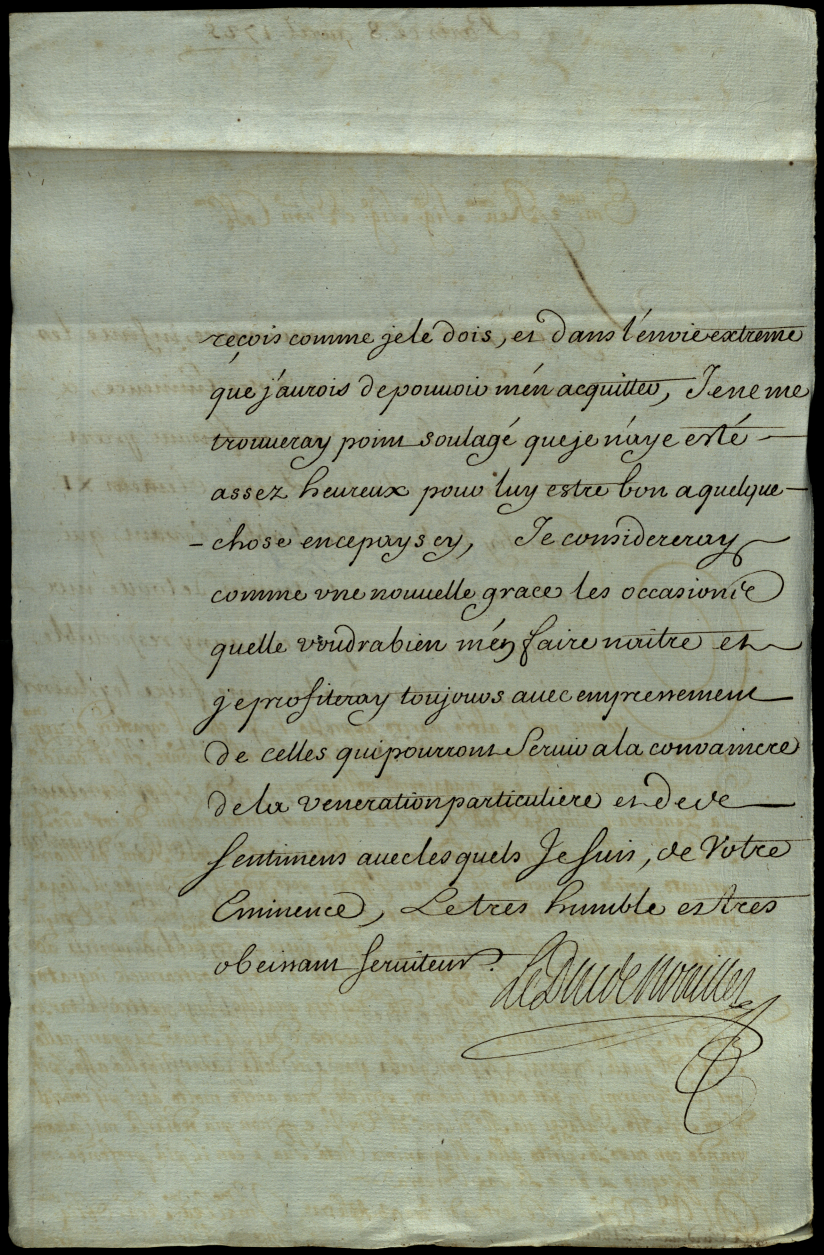 reçois comme je le dois, et dans l'envie extreme
que j'aurois de pouvoir m'en acquitter, Je ne me
trouveray point soulagé que je n'aye esté
assez heureux pour luy estre bon a quelque
chose en ce pays cy, Je considereray
comme une nouvelle grace les occasions
quelle voudra bien m'en faire naitre et
je profiteray toujours avec empressement
de celles qui pourront Servir a la convaincre
de la veneration particuliere et de
sentimens avec lesquels Je suis, de Votre
Eminence, Le tres humble et tres
obeissant serviteur.
Le Duc de Noailles